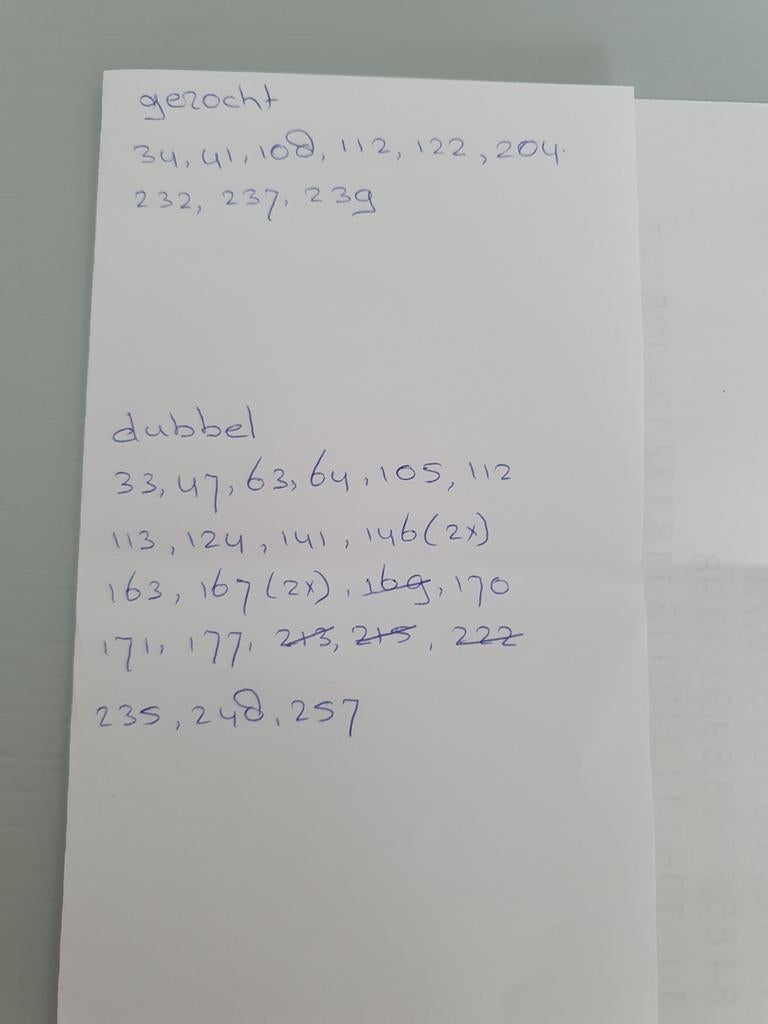 gezocht
34, 41, 108, 112, 122, 204.
232, 237, 239
dubbel
33, 47, 63, 64, 105, 112
113, 124, 141, 146 (2x)
163, 167 (2x), 169, 170
171, 177, 213, 215, 222
235, 248, 257